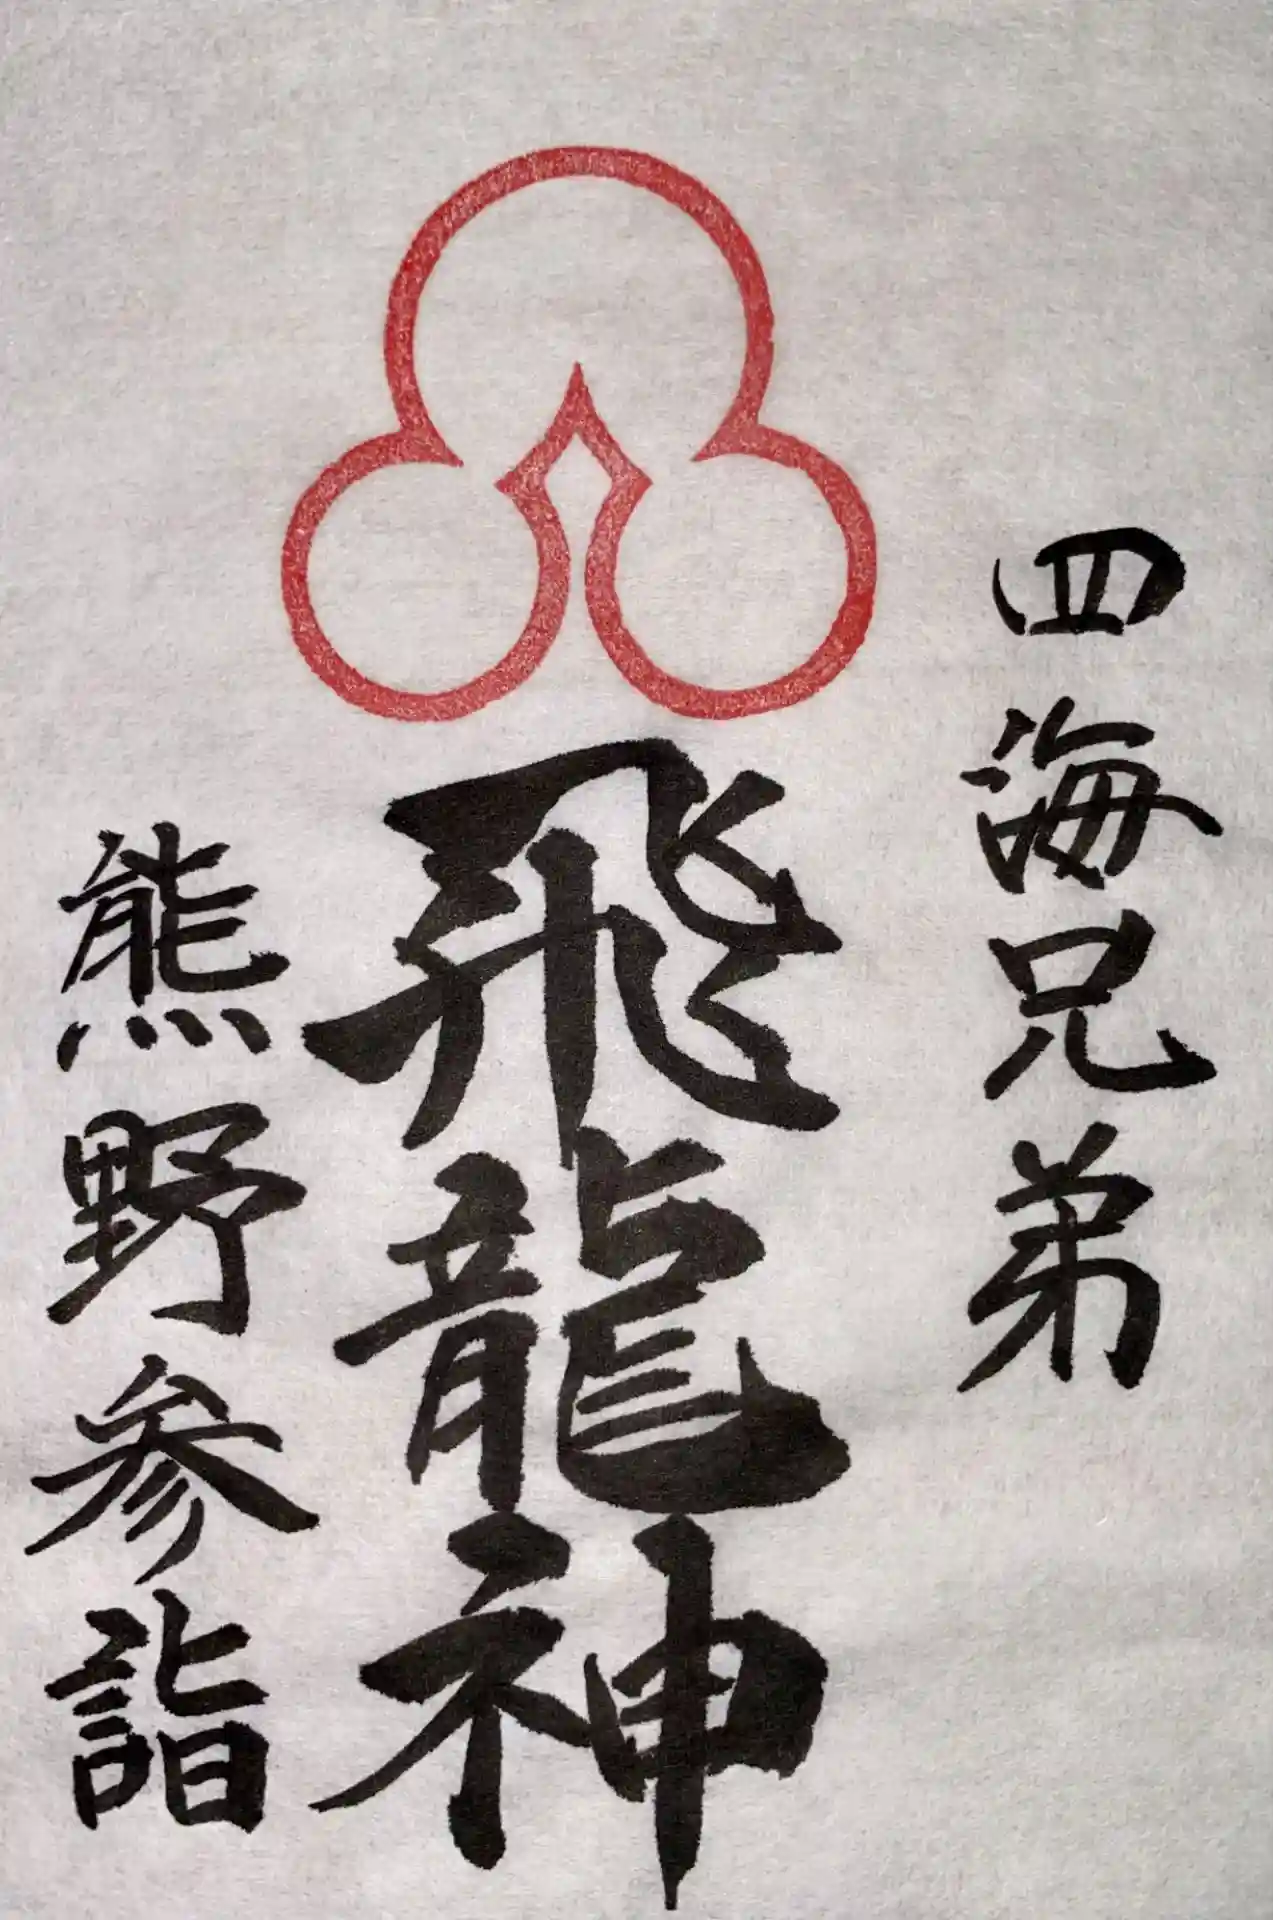 四海兄弟
飛龍神
熊野参詣